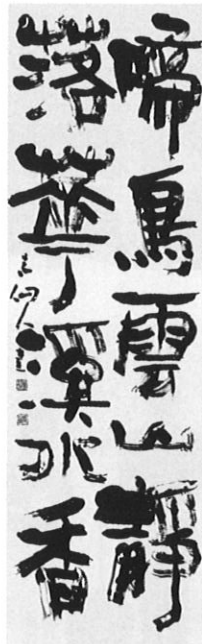 啼鳥雲山靜
落華溪水香